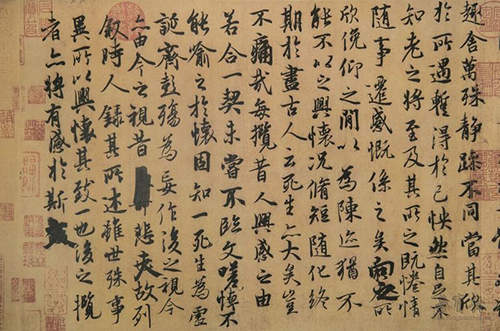 趣舍萬殊静躁不同當其欣
於所遇蹔得於己怏然自足不
知老之將至及其所之既惓情
隨事遷感慨係之矣向之所
欣俛仰之閒以為陳迹猶不
能不以之興懷况脩短隨化終
期於盡古人云死生亦大矣豈
不痛哉每攬昔人興感之由
若合一契未嘗不臨文嗟悼不
能喻之於懷固知一死生為虛
誕齊彭殤為妄作後之視今
亦由今之視昔悲夫故列
敘時人錄其所述雖世殊事
異所以興懷其致一也後之攬
者亦將有感於斯文